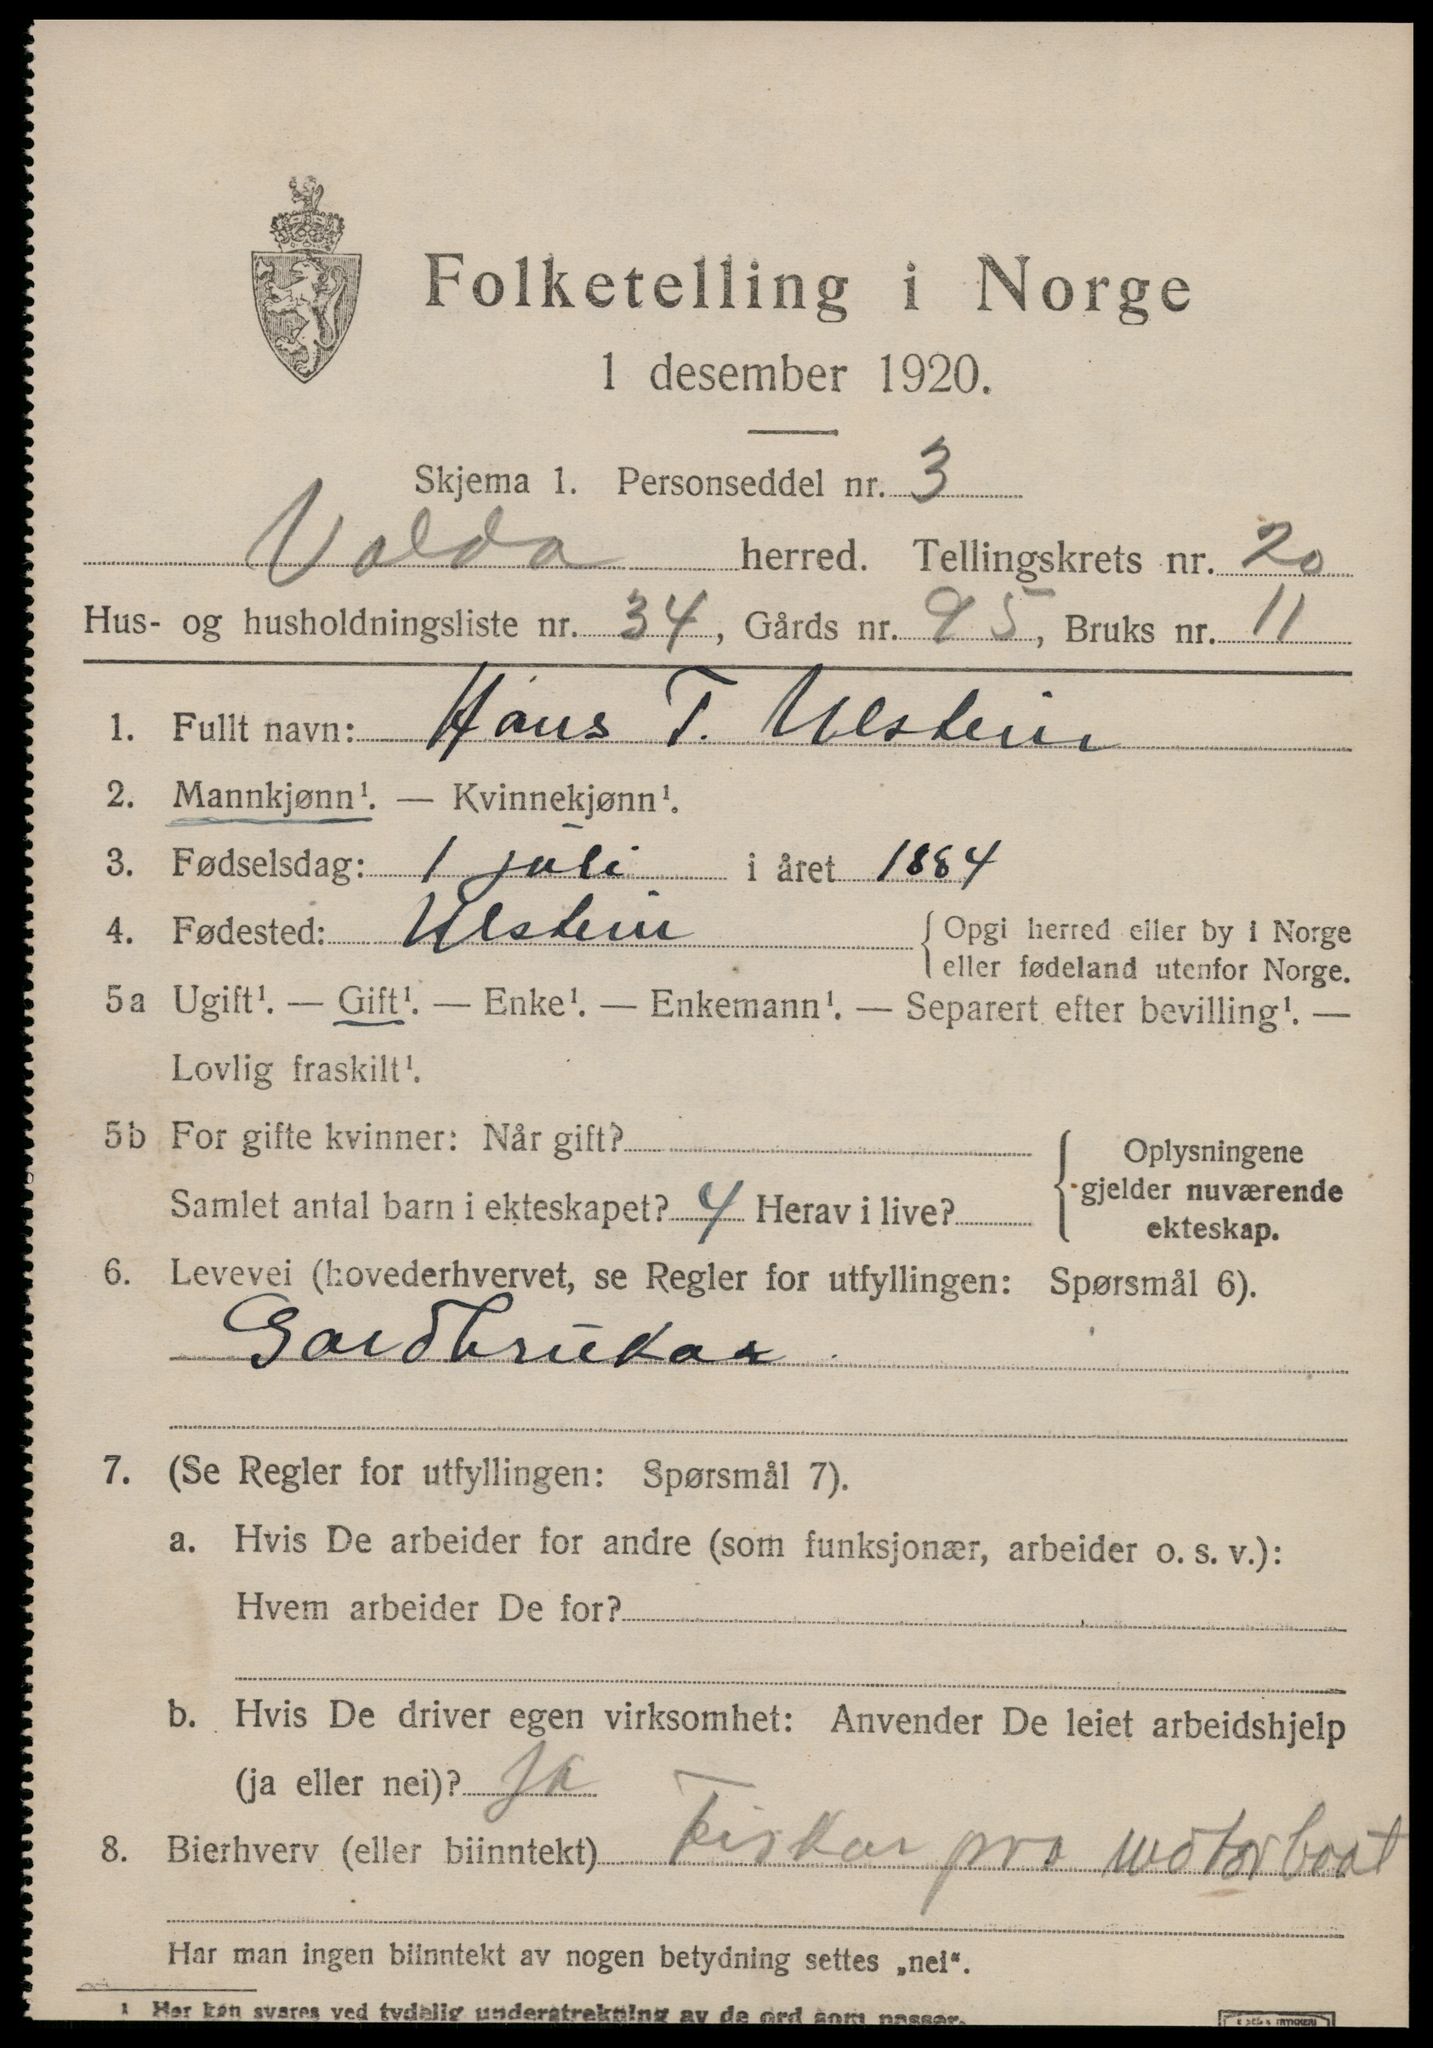 Folketelling i Norge
1 desember 1920.
Skjema 1. Personseddel nr. 3
Volda herred. Tellingskrets nr. 20
Hus- og husholdningsliste nr. 34, Gårds nr. 95, Bruks nr. 11
1. Fullt navn: Hans T. Ulstein
2. Mannkjønn¹. — Kvinnekjønn¹.
3. Fødselsdag: 1 juli i året 1884
4. Fødested: Ulstein { Opgi herred eller by i Norge
eller fødeland utenfor Norge.
5a Ugift¹. — Gift¹. — Enke¹. — Enkemann¹. — Separert efter bevilling¹. —
Lovlig fraskilt¹.
5b For gifte kvinner: Når gift?
Samlet antal barn i ekteskapet? 4 Herav i live?
{ Oplysningene
gjelder nuværende
ekteskap.
6. Levevei (hovederhvervet, se Regler for utfyllingen: Spørsmål 6).
Gardbrukar
7. (Se Regler for utfyllingen: Spørsmål 7).
a. Hvis De arbeider for andre (som funksjonær, arbeider o. s. v.):
Hvem arbeider De for?
b. Hvis De driver egen virksomhet: Anvender De leiet arbeidshjelp
(ja eller nei)? Ja
8. Bierhverv (eller biinntekt) Fiskar pra motorboat
Har man ingen biinntekt av nogen betydning settes „nei“.
1 Her kan svares ved tydelig understrekning av de ord som passer.